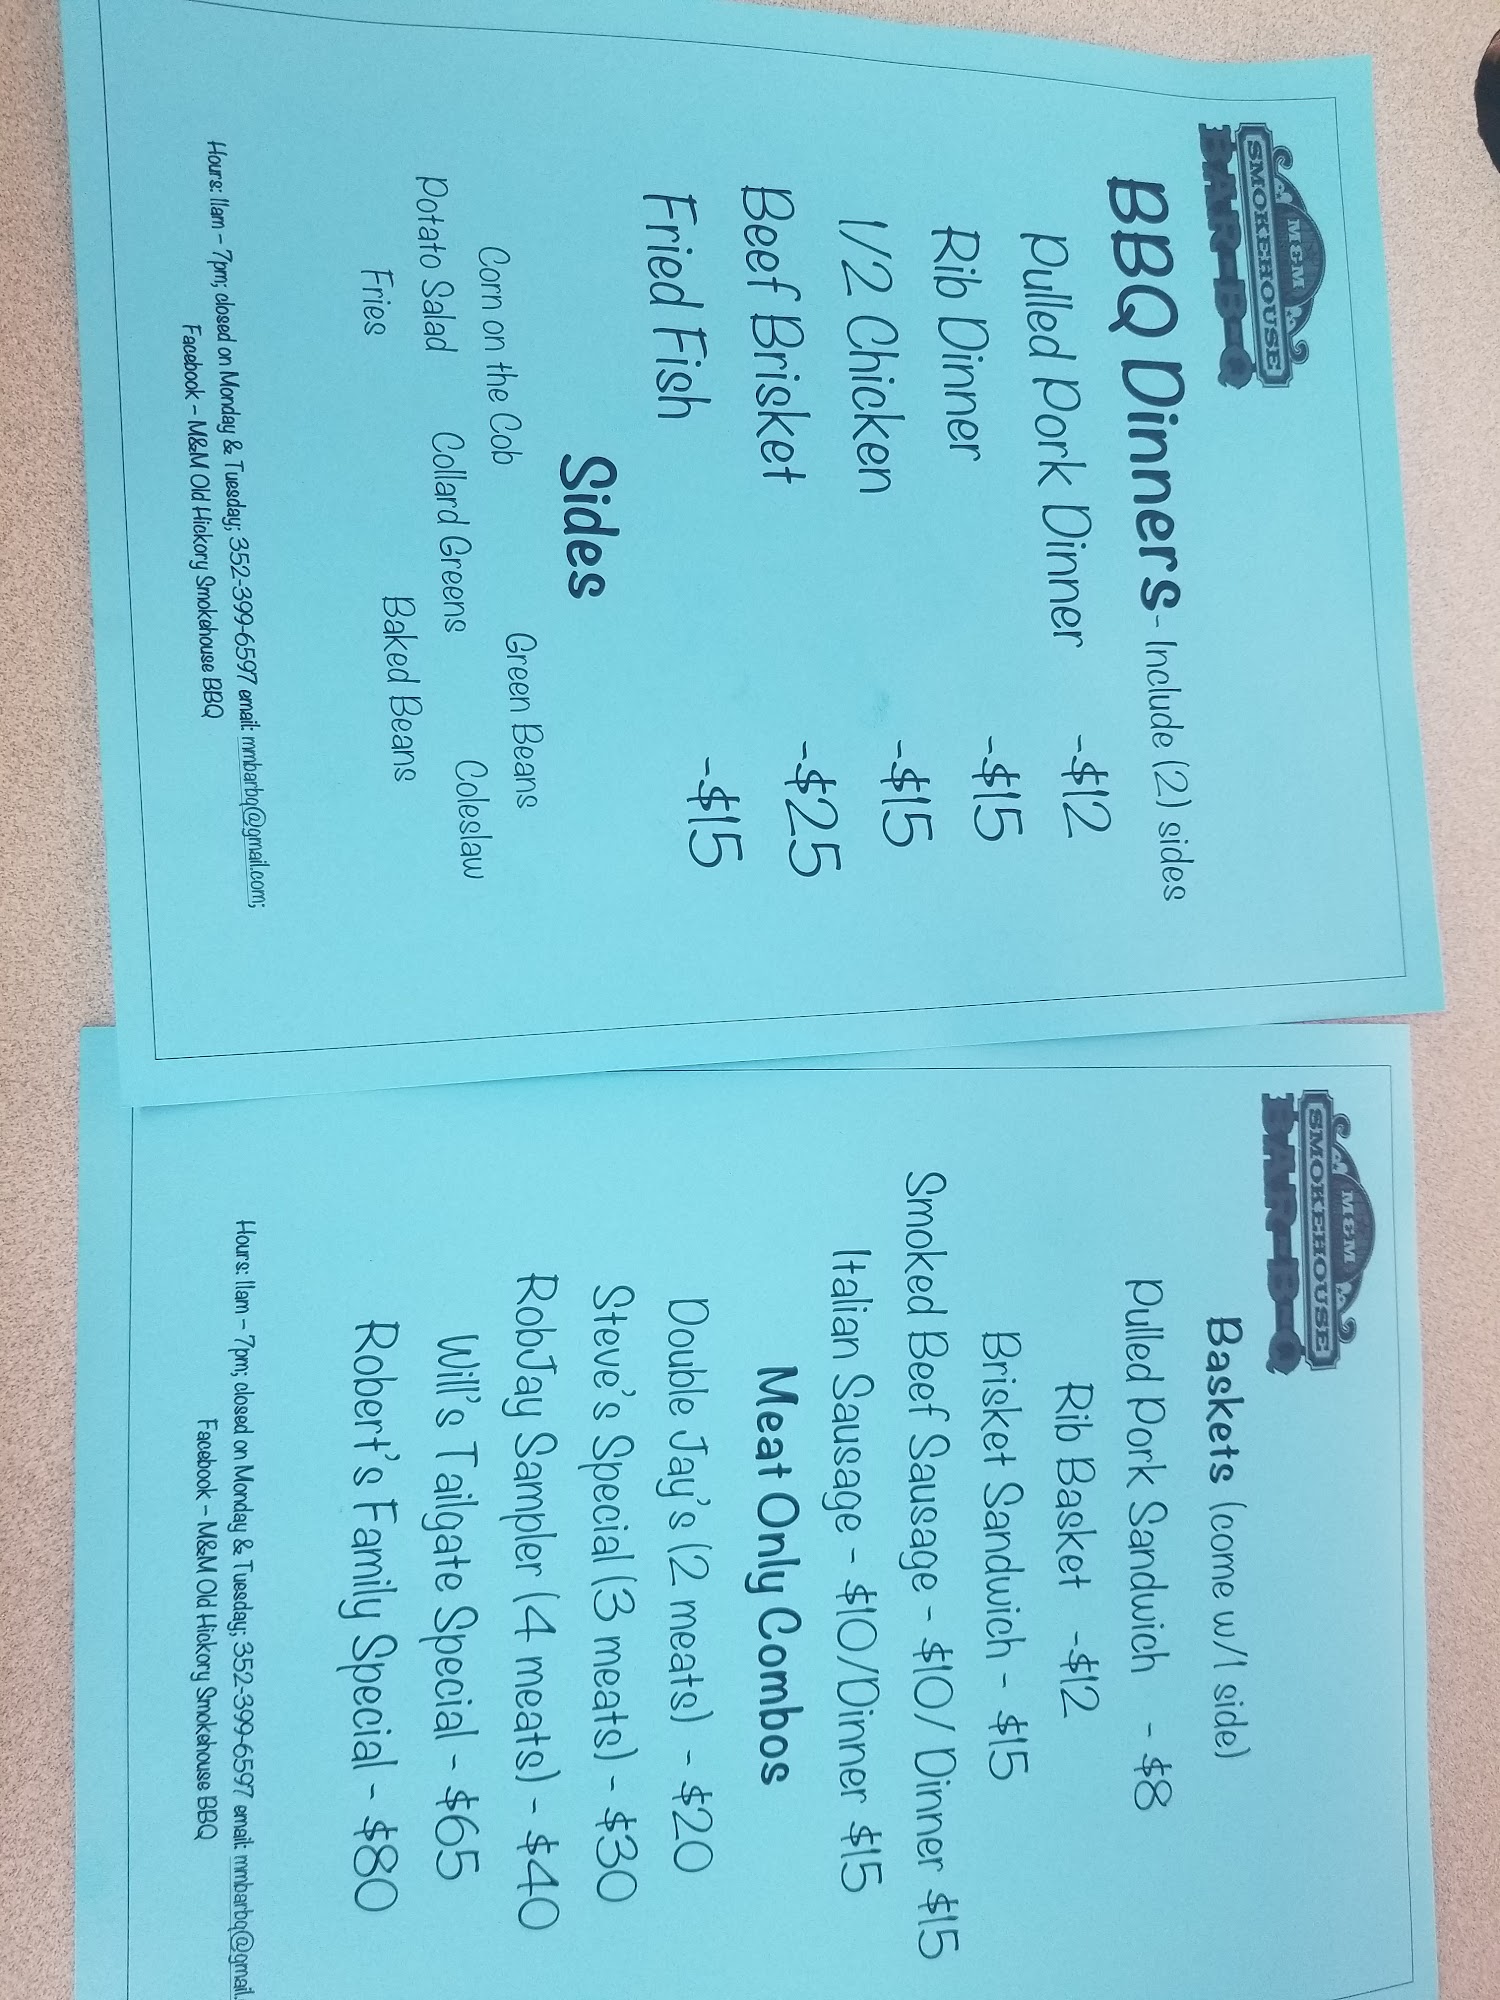 M&M
SMOKEHOUSE
BAR-B-Q
BBQ Dinners - Include (2) sides
Pulled Pork Dinner -$12
Rib Dinner -$15
1/2 Chicken -$15
Beef Brisket -$25
Fried Fish -$15
Sides
Corn on the Cob Green Beans
Potato Salad Collard Greens Coleslaw
Fries Baked Beans
Hours: 11am - 7pm; closed on Monday & Tuesday; 352-399-6597 email: mmbarbq@gmail.com;
Facebook - M&M Old Hickory Smokehouse BBQ
M&M
SMOKEHOUSE
BAR-B-Q
Baskets (come w/1 side)
Pulled Pork Sandwich - $8
Rib Basket -$12
Brisket Sandwich - $15
Smoked Beef Sausage - $10/ Dinner $15
Italian Sausage - $10/Dinner $15
Meat Only Combos
Double Jay's (2 meats) - $20
Steve's Special (3 meats) - $30
RobJay Sampler (4 meats) - $40
Will's Tailgate Special - $65
Robert's Family Special - $80
Hours: 11am - 7pm; closed on Monday & Tuesday; 352-399-6597 email: mmbarbq@gmail.
Facebook - M&M Old Hickory Smokehouse BBQ